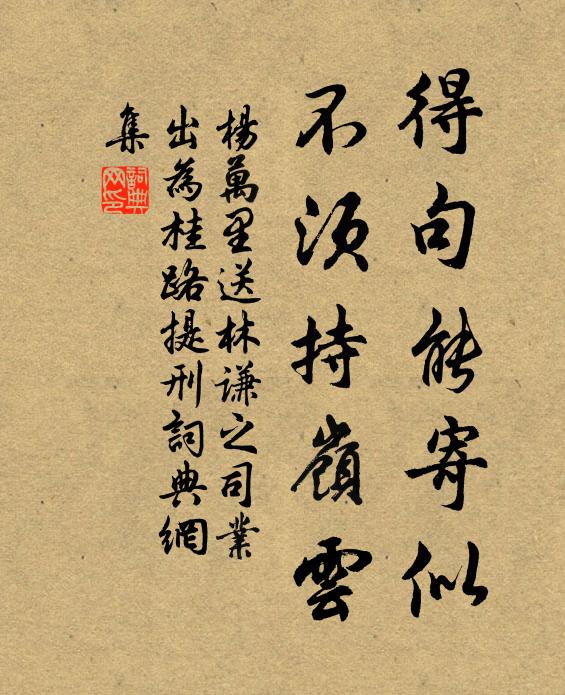 得句能寄似
不須持嶺雲
楊萬里送林謙之司業
出為桂路提刑詞典網
集
詞典網印